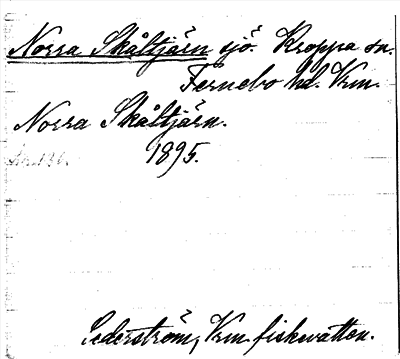 Norra Skåltjärn sjö. Kroppa sn.
Fernebo hd. Vrm.
Norra Skåltjärn.
1895.
Cederström, Vrm. fiskevatten.